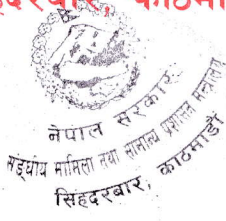 सिंहदरबार, काठमा
नेपाल सरकार
सङ्घीय मामिला तथा सामान्य प्रशासन मन्त्रालय
सिंहदरबार, काठमाडौं